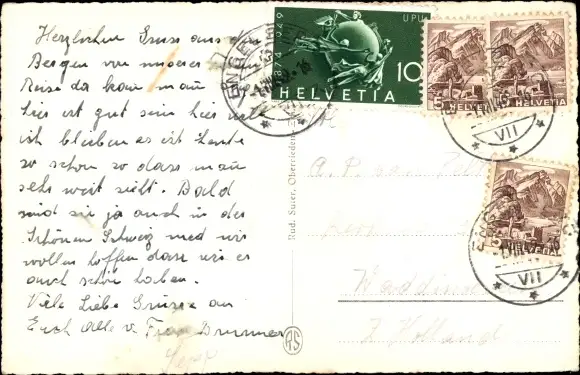 Herzlichen Gruss aus
Bergen von unserer
Reise da kann man
hier ist gut sein hier
ich bleiben es ist heute
so schön so dass man
sehr weit sieht. Bald
sind sie ja auch in der
Schönen Schweiz und wir
wollen hoffen dass wir es
auch schön haben.
Viele Liebe Grüsse an
Euch Alle v. Frau Brunner
1874-1949 UPU
10
HELVETIA
5 HELVETIA
HELVETIA
VII
VII
Rud. Suter, Oberrieden
RS
A. P.
Z. Holland